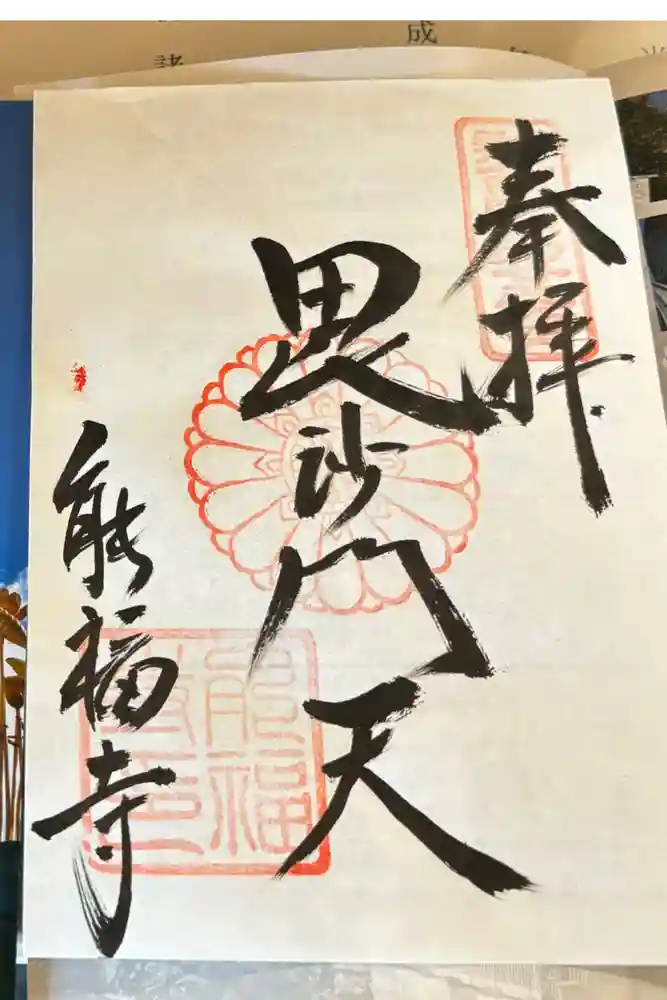 奉拝
毘沙門天
能福寺
能福寺印
成
諸